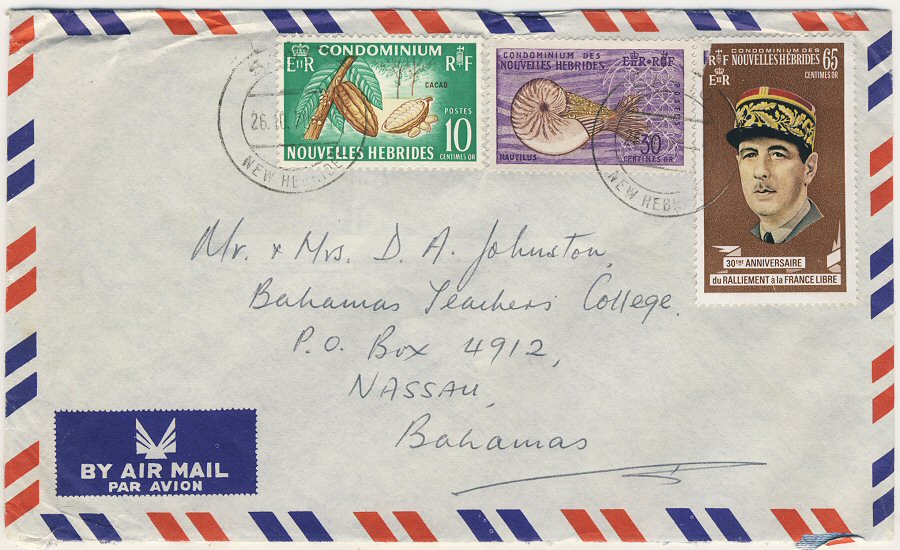 CONDOMINIUM
EIIR RF
CACAO
POSTES
10
CENTIMES OR
NOUVELLES HEBRIDES
CONDOMINIUM DES
NOUVELLES HEBRIDES EIIR RF
POSTES
NAUTILUS
30
CENTIMES OR
CONDOMINIUM DES
RF NOUVELLES HÉBRIDES 65
EIIR CENTIMES OR
30ÈME ANNIVERSAIRE
du RALLIEMENT à la FRANCE LIBRE
26.10.
NEW HEBRIDE
NEW HEBR
Mr. + Mrs. D. A. Johnston,
Bahamas Teachers' College,
P.O. Box 4912,
NASSAU,
Bahamas
BY AIR MAIL
PAR AVION